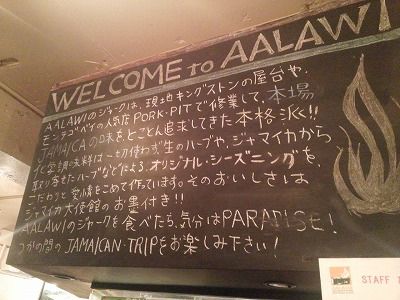 WELCOME to AALAWI
AALAWIのジャークは、現地キングストンの屋台や、
モンテゴベイの人気店PORK・PITで修業して、本場
JAMAICAの味を、とことん追求してきた本格派!!
化学調味料は一切使わず生のハーブや、ジャマイカから
取り寄せたハーブなどによる、オリジナル・シーズニングを、
こだわりと愛情をこめて作っています。そのおいしさは
ジャマイカ大使館のお墨付き!!
AALAWIのジャークを食べたら、気分はPARADISE!
つかの間のJAMAICAN・TRIPをお楽しみ下さい!
STAFF